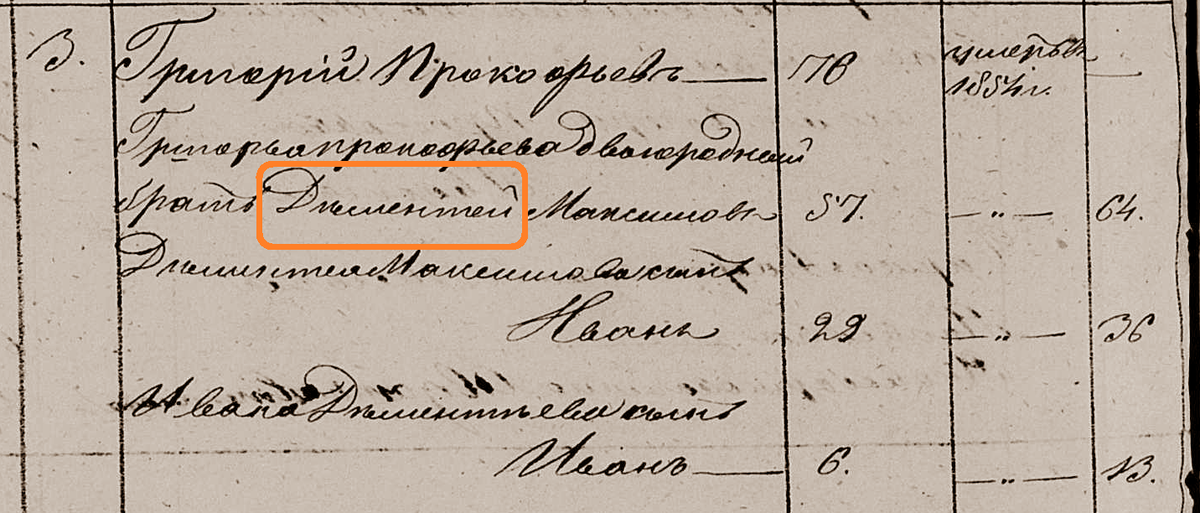 3. Григорій Прокофьевъ — 76 умеръ въ 1854 г. —
Григорья Прокофьева двоюродный
братъ Дѣментей Максимовъ 57. — „ — 64.
Дѣментея Максимова сынъ
Иванъ 29 — „ — 36
Ивана Дѣментьева сынъ
Иванъ — 6. — „ — 13.